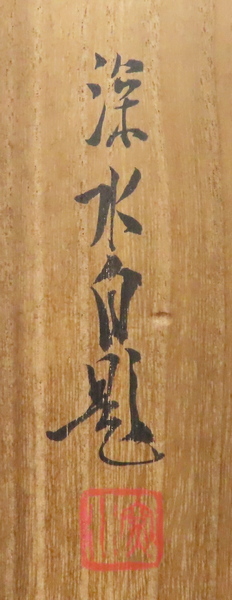 深水自題